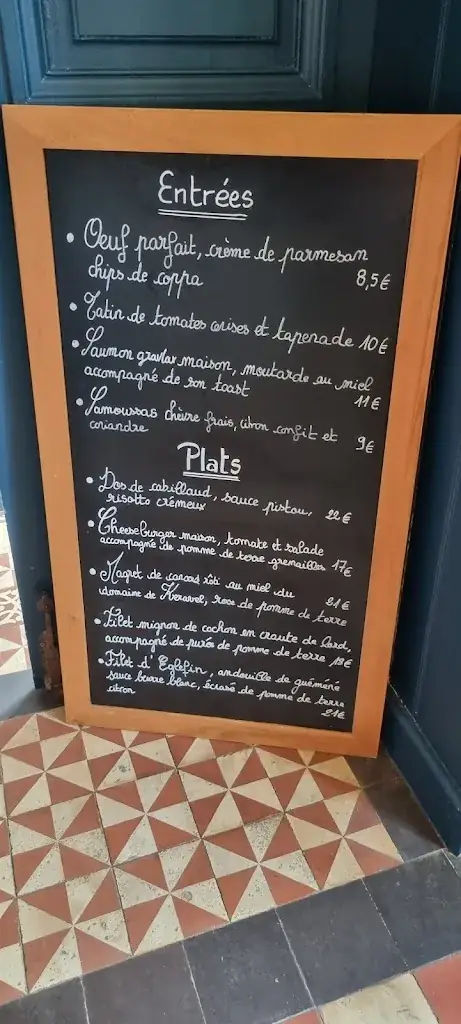 Entrées
• Oeuf parfait, crème de parmesan
chips de coppa 8,5€
• Tatin de tomates cerises et tapenade 10€
• Saumon gravlax maison, moutarde au miel
accompagné de son toast 11€
• Samoussas chèvre frais, citron confit et
coriandre 9€
Plats
• Dos de cabillaud, sauce pistou,
risotto crémeux 22€
• Cheeseburger maison, tomate et salade
accompagné de pomme de terre grenailles 17€
• Magret de canard rôti au miel du
domaine de Keravel, rose de pomme de terre 21€
• Filet mignon de cochon en croute de lard,
accompagné de purée de pomme de terre 18€
• Filet d'Eglefin, andouille de guémené
sauce beurre blanc, écrasé de pomme de terre
citron 21€